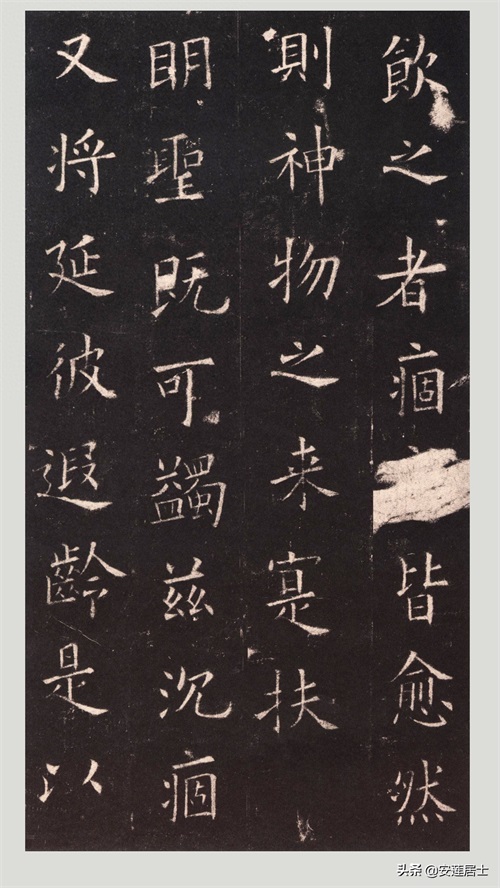 飲之者痼皆愈然
則神物之来寔扶
眀聖既可蠲兹沉痼
又将延彼遐齡是以
头条 @安莲居士